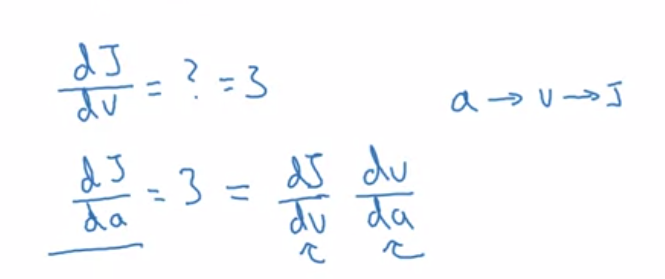 dJ/dv = ? = 3
a → v → J
dJ/da = 3 = dJ/dv dv/da